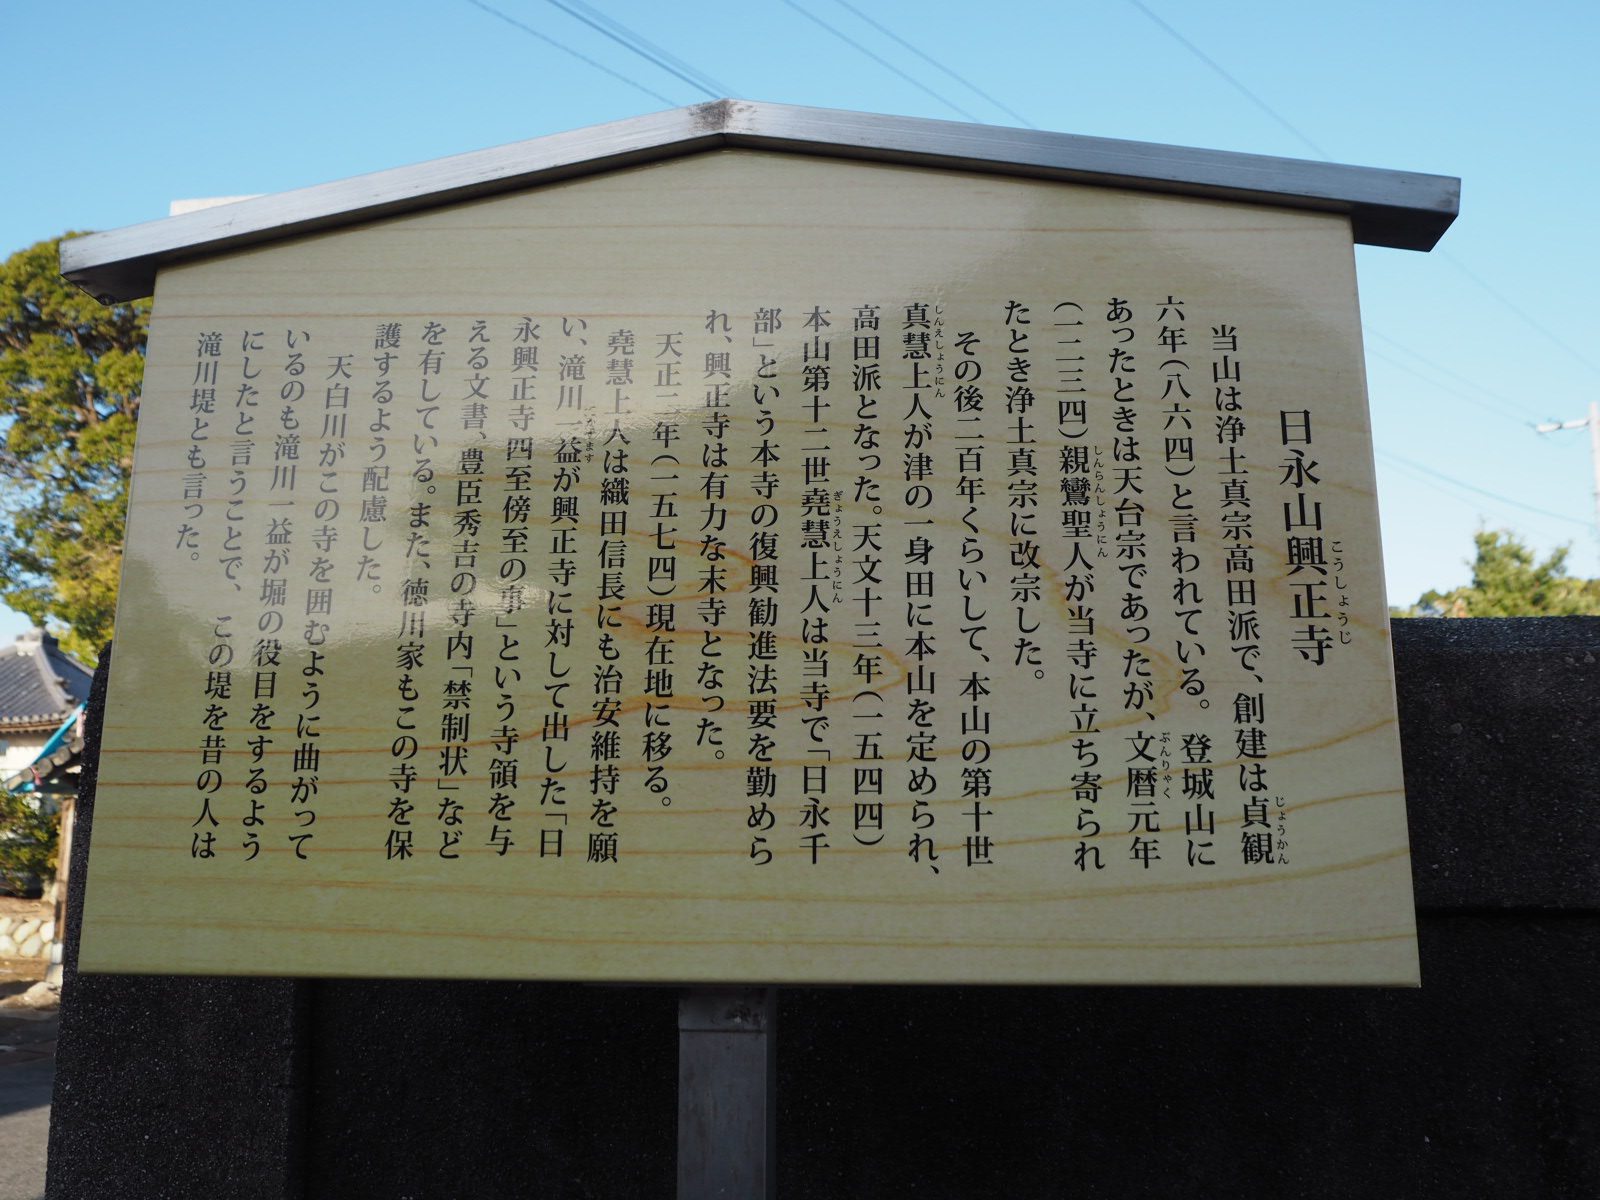 日永山興正寺
こうしょうじ
当山は浄土真宗高田派で、創建は貞観
じょうかん
六年(八六四)と言われている。登城山に
あったときは天台宗であったが、文暦元年
ぶんりゃく
(一二三四)親鸞聖人が当寺に立ち寄られ
しんらんしょうにん
たとき浄土真宗に改宗した。
その後二百年くらいして、本山の第十世
真慧上人が津の一身田に本山を定められ、
しんえしょうにん
高田派となった。天文十三年(一五四四)
本山第十二世堯慧上人は当寺で「日永千
ぎょうえしょうにん
部」という本寺の復興勧進法要を勤めら
れ、興正寺は有力な末寺となった。
天正二年(一五七四)現在地に移る。
堯慧上人は織田信長にも治安維持を願
い、滝川一益が興正寺に対して出した「日
かずます
永興正寺四至傍至の事」という寺領を与
える文書、豊臣秀吉の寺内「禁制状」など
を有している。また、徳川家もこの寺を保
護するよう配慮した。
天白川がこの寺を囲むように曲がって
いるのも滝川一益が堀の役目をするよう
にしたと言うことで、この堤を昔の人は
滝川堤とも言った。